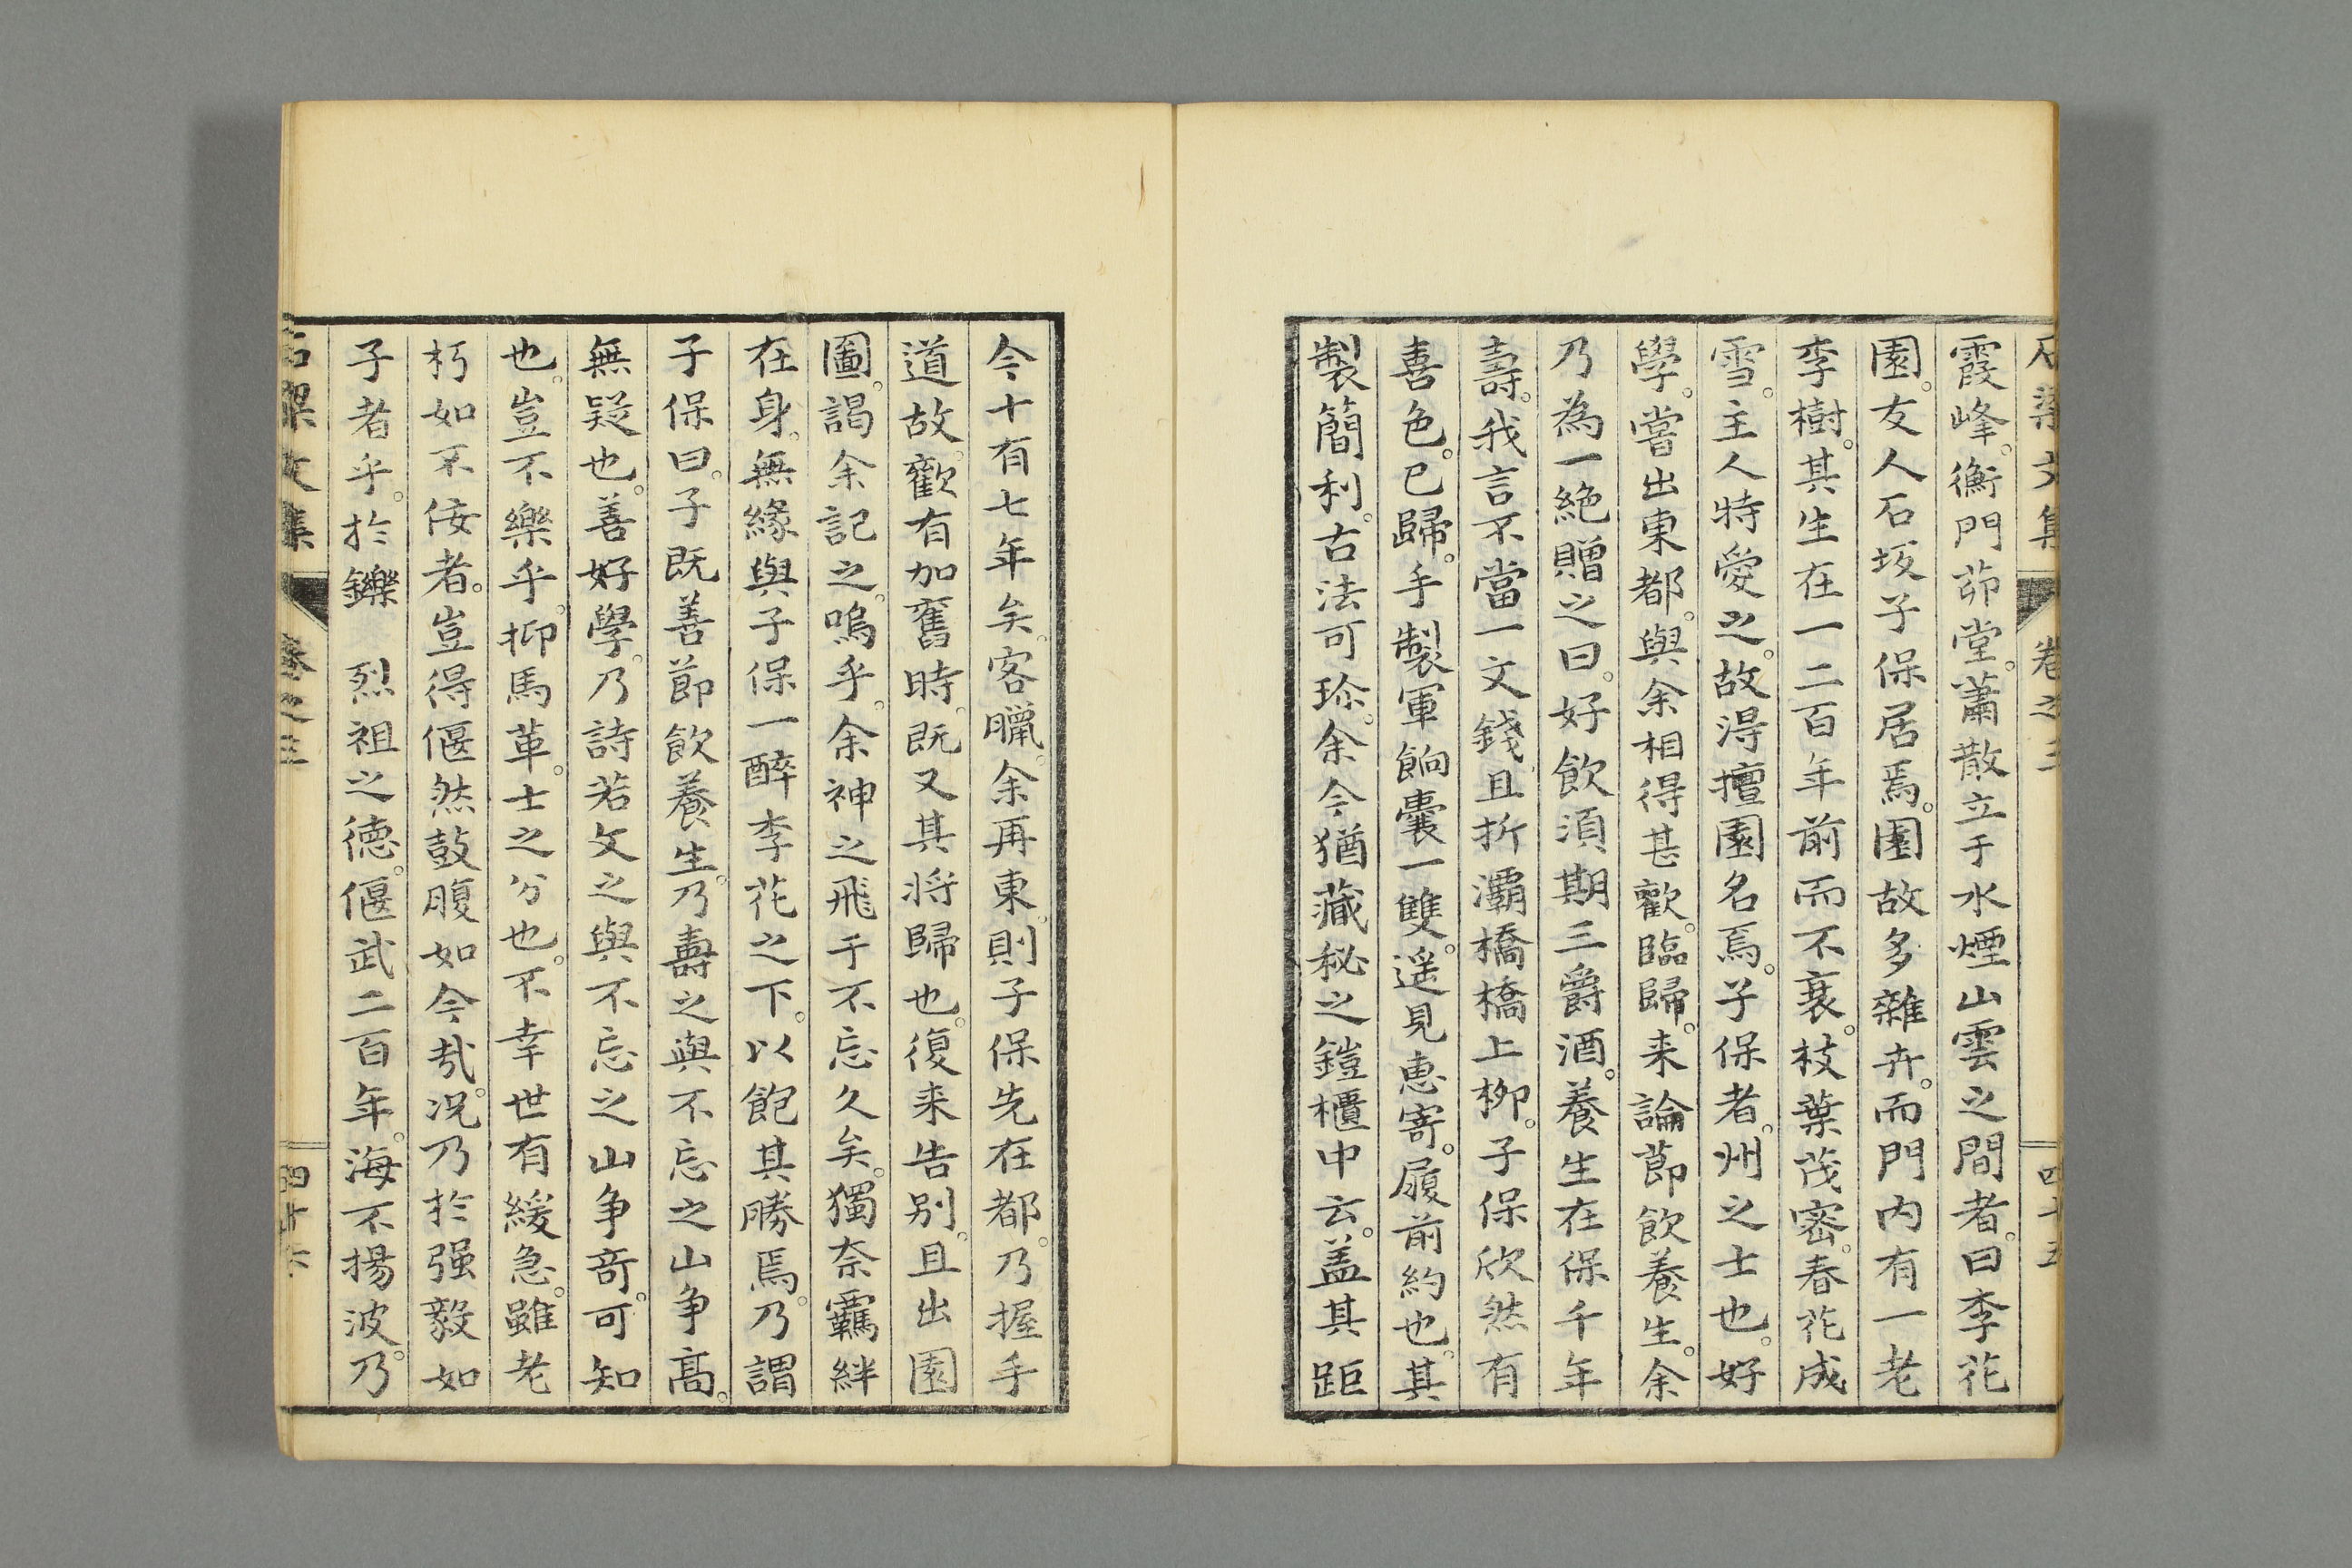 石梁文集 卷之三 四十五
霞峰。衡門茆堂。蕭散立于水煙山雲之間者。曰李花
園。友人石坂子保居焉。園故多雜卉。而門内有一老
李樹。其生在一二百年前而不衰。枝葉茂密。春花成
雪。主人特愛之。故淂擅園名焉。子保者。州之士也。好
學。嘗出東都。與余相得甚歡。臨歸。来論莭飲養生。余
乃為一絶贈之曰。好飲湏期三爵酒。養生在保千年
壽。我言不當一文錢。且折灞橋橋上栁。子保欣然有
喜色。已歸。手製軍餉囊一雙。遥見恵寄。履前約也。其
製簡利。古法可珎。余今猶蔵秘之鎧櫃中云。盖其距
今十有七年矣。客臘。余再東。則子保先在都。乃握手
道故。歡有加舊時。既又其将歸也。復来告别。且出園
圖。謁余記之。嗚乎。余神之飛于不忘久矣。獨奈羈絆
在身。無緣與子保一醉李花之下。以飽其勝焉。乃謂
子保曰。子既善莭飲養生。乃壽之與不忘之山争高。
無疑也。善好學。乃詩若文之與不忘之山争竒。可知
也。豈不樂乎。抑馬革。士之分也。不幸世有緩急。雖老
朽如不佞者。豈得偃然鼓腹如今㢤。况乃於强毅如
子者乎。於鑠　烈祖之德。偃武二百年。海不揚波。乃
石梁文集 卷之三 四十六